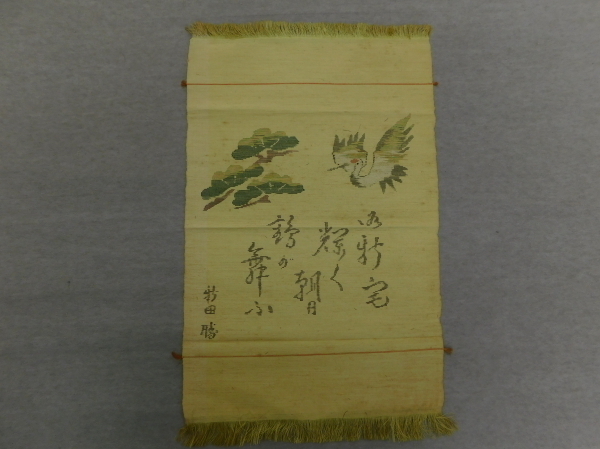 御新宅
輝く朝日
鶴が舞ふ
新田勝